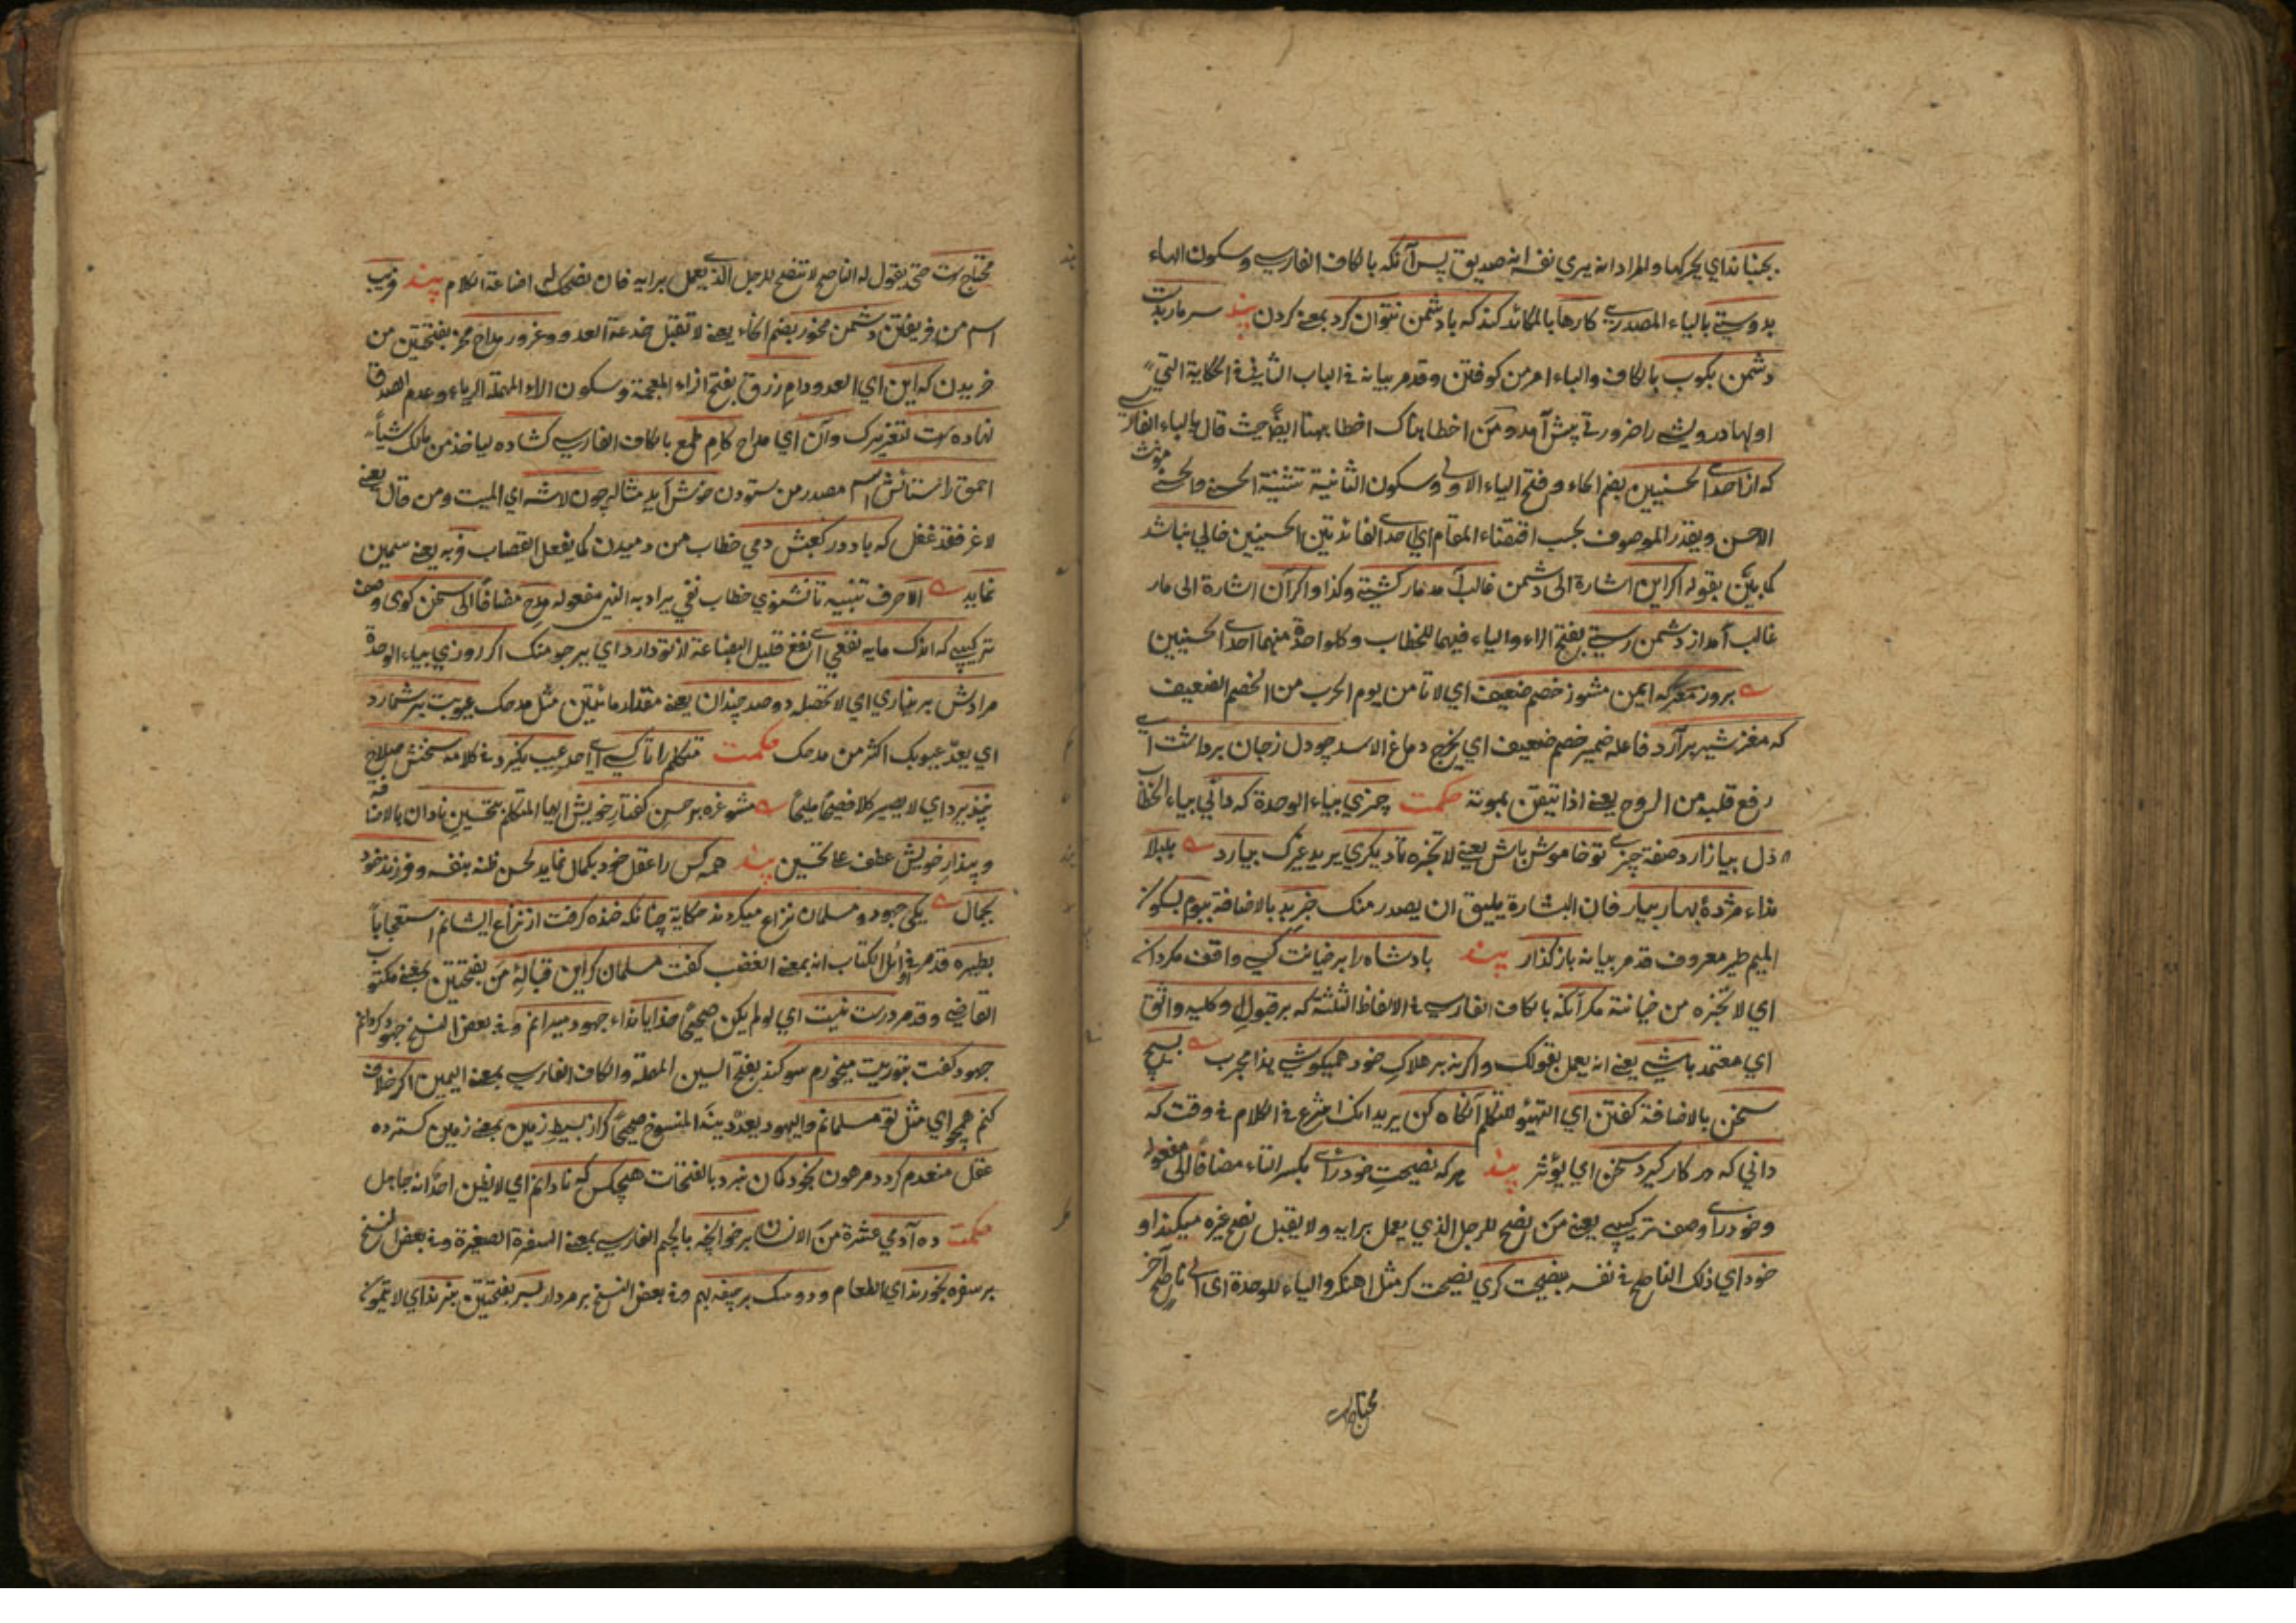 بجنباند اي يحركها والمراد انه يري نفسه انه صديق پس آنكه بالكاف الفارسي وسكون الهاء
بدوستي بالياء المصدري كارها بالمكائد كند كه با دشمن نتوان كرد بمعنى كردن پند سر مار بدست
دشمن بكوب بالكاف والباء امر من كوفتن وقد مر بيانه في الباب الثاني في الحكاية التي
اولها درويشي را ضرورتي پيش آمد ومن اخطا هناك اخطا ههنا ايضًا حيث قال بالباء الفارسي
كه از احدى الحسنيين بضم الحاء وفتح الياء الاولى وسكون الثانية تثنية الحسنى والحسنى مؤنث
الاحسن ويقدر الموصوف بحسب اقتضاء المقام اي احدى الفائدتين الحسنيين خالي نباشد
كما بيّن بقوله اكر اين اشارة الى دشمن غالب آمد مار كشتي وكذا واكر آن اشارة الى مار
غالب آمد از دشمن رستي بفتح الراء والياء فيهما للخطاب وكل واحدة منهما احدى الحسنيين
بروز معركه ايمن مشو ز خصم ضعيف اي لا تامن يوم الحرب من الخصم الضعيف
كه مغز شير برآرد فاعله ضمير خصم ضعيف اي يخرج دماغ الاسد چو دل ز جان برداشت اي
رفع قلبه من الروح يعني اذا تيقن بموته حكمت چيزي بياء الوحدة كه داني بياء الخطاب
دل بيازارد صفة چيزي تو خاموش باش يعني لا تخبره تا ديكري يريد غيرك بيارد بلبلا
نداء مژدۀ بهار بيار فان البشارة يليق ان يصدر منك خبر بد بالاضافة ببوم بسكون
الميم طير معروف قد مر بيانه باز كذار پند بادشاه را بر خيانت كسي واقف مكردان
اي لا تخبره من خيانته مكر آنكه بالكاف الفارسي في الالفاظ الثلثة كه بر قبول وكليه واثق
اي معتمد باشي يعني انه يعمل بقولك واكر نه بر هلاك خود هميكوشي هذا مجرب بسيج
سخن بالاضافة كفتن اي التهيؤ للتكلم آنكاه كن يريد انك اشرع في الكلام في وقت كه
داني كه در كار كيرد سخن اي يؤثر پند هركه نصيحت خودراي بكسر التاء مضافًا الى مفعوله
وخودراي وصف تركيبي يعني من نصح للرجل الذي يعمل برايه ولا يقبل نصح غيره ميكند او
خود اي ذلك الناصح في نفسه بنصيحت كري نصيحت كر مثل آهنكر والياء للوحدة اي الى ناصح آخر
محتاجست
محتاجست حتى يقول له الناصح لا تنصح للرجل الذي يعمل برايه فان نصحك له اضاعة الكلام پند فريب
اسم من فريفتن دشمن مخور بضم الخاء يعني لا تقبل خدعة العدو وغرور مداح مخر بفتحتين من
خريدن كه اين اي العدو دام زرق بفتح الزاء المعجمة وسكون الراء المهملة الرياء وعدم الصدق
نهاده است لتغريرك وآن اي مداح كام طمع بالكاف الفارسي كشاده لياخذ من مالك شيأ
احمق را ستائش اسم مصدر من ستودن خوش آيد مثاله چون لاشه اي الميت ومن قال يعني
لاغر فقد غفل كه باد در كعبش دمي خطاب من دميدن كما يفعل القصاب فربه يعني سمين
نمايد الا حرف تنبيه تا نشنوي خطاب نفي يراد به النهي مفعوله مدح مضافًا الى سخن كوي وصف
تركيبي كه اندك مايه نفعي اي نفع قليل البضاعة از تو دارد اي يرجو منك اكر روزي بياء الوحدة
مرادش بر نياري اي لا تحصله دو صد چندان يعني مقدار مائتين مثل مدحك عيوبت بر شمارد
اي يعدّ عيوبك اكثر من مدحك حكمت متكلم را تا كسي اي احد عيب نكيرد في كلامه سخنش صلاح
نپذيرد اي لا يصير كلامه فصيحًا مليحًا مشو غره بر حسن كفتار خويش ايها المتكلم بتحسين نادان بالاضافة
وپندار خويش عطف على تحسين پند همه كس را عقل خود بكمال نمايد لحسن ظنه بنفسه وفرزند خود
بجمال يكي جهود ومسلمان نزاع ميكردند حكاية چنانكه خنده كرفت از نزاع ايشانم استعجاباً
بطيره قد مر في اوائل الكتاب انه بمعنى الغضب كفت مسلمان كر اين قبالۀ من بفتحتين بمعنى مكتوب
القاضي وقد مر درست نيست اي لو لم يكن صحيحًا خدايا نداء جهود ميرانم وفي بعض النسخ جهود كردانم
جهود كفت بتوريت ميخورم سوكند بفتح السين المهملة والكاف الفارسي بمعنى اليمين اكر خلاف
كنم همچو اي مثل تو مسلمانم واليهود يعدّ دينه المنسوخ صحيحًا كر از بسيط زمين بمعنى زمين كسترده
عقل منعدم كردد مرهون بخود كمان نبرد بالفتحات هيچكس كه نادانم اي لا يظن احدٌ انه جاهل
حكمت ده آدمي عشرة من الانسان بر خوانچه بالجيم الفارسي بمعنى السفرة الصغيرة وفي بعض النسخ
بر سفره بخورند اي الطعام ودو سك بر جيفه بهم وفي بعض النسخ بر مردار بسر بفتحتين نبرند اي لا يتمون